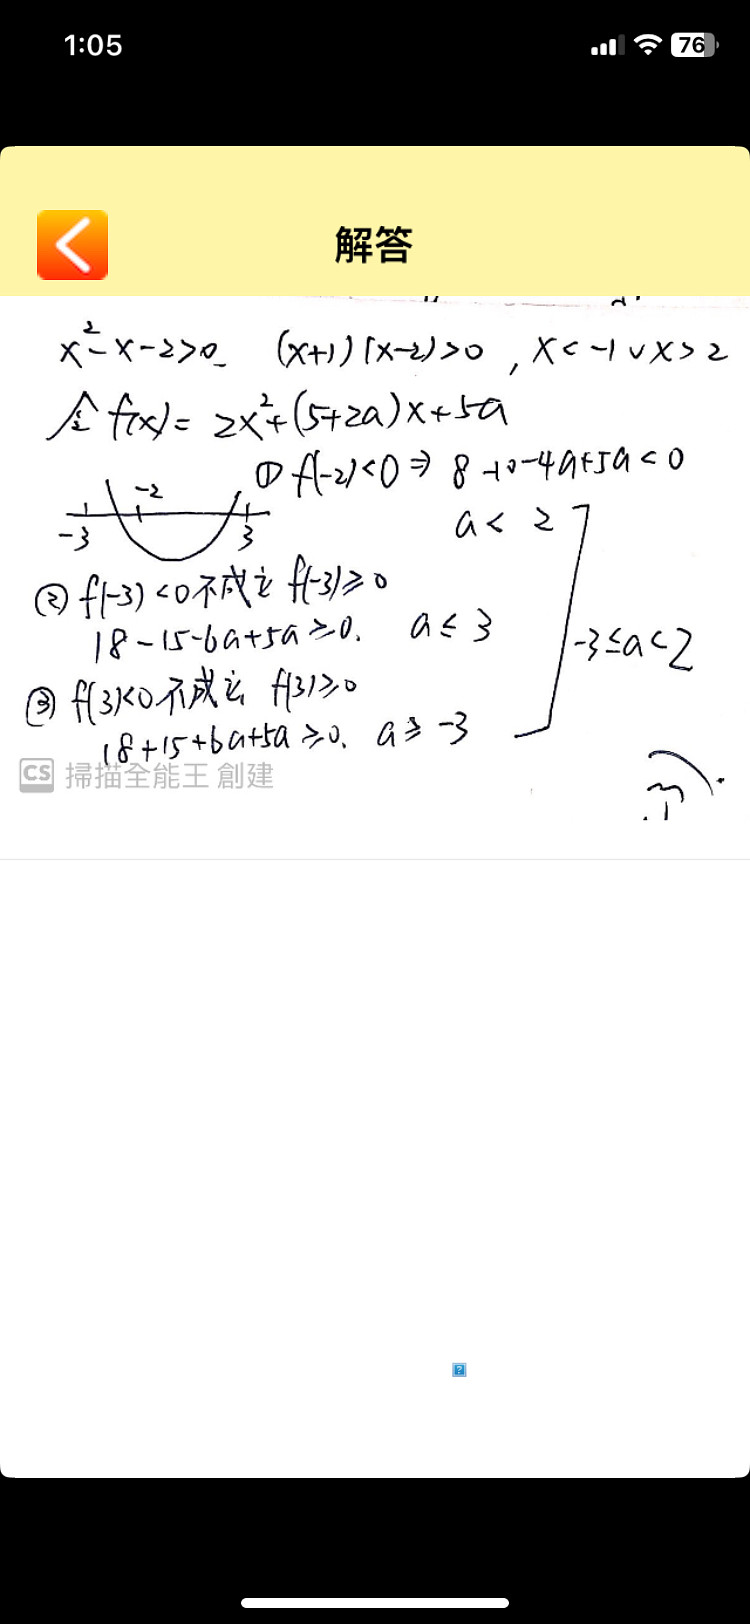 1:05
76
解答
x²-x-2>0 (x+1)(x-2)>0, x<-1∨x>2
令 f(x)=2x²+(5+2a)x+5a
① f(-2)<0⇒8-10-4a+5a<0
-2
-3 3
a<2
② f(-3)<0不成立 f(-3)≥0
18-15-6a+5a≥0. a≤3
-3≤a<2
③ f(3)<0不成立 f(3)≥0
18+15+6a+5a≥0. a≥-3
CS 掃描全能王 創建